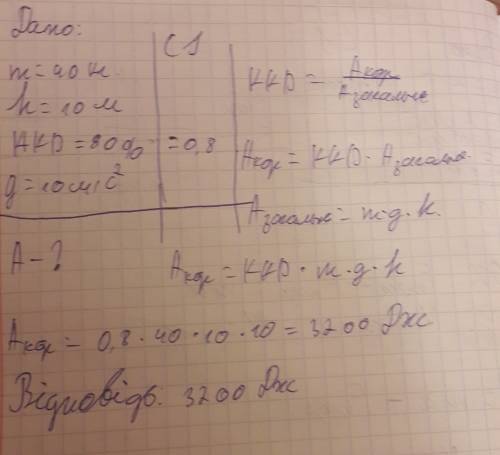 Дано:
СІ
m = 40 к
h = 10 м
ККД = 80% = 0,8
g = 10 м/с²
А - ?
ККД = Акор / Азагальне
Акор = ККД · Азагальна
Азагальне = m·g·h.
Акор = ККД · m · g · h
Акор = 0,8 · 40 · 10 · 10 = 3200 Дж
Відповідь. 3200 Дж